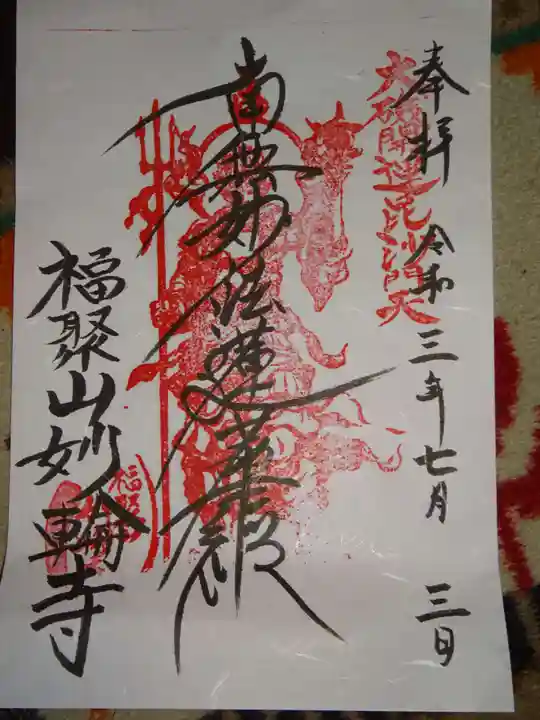 奉拝 令和三年七月三日
大磯開運毘沙門天
南無妙法蓮華経
福聚山妙輪寺